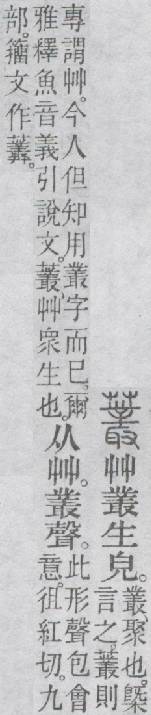 䕺艸叢生皃。
叢聚也。槩
言之。䕺則
專謂艸。今人但知用叢字而已。爾
雅釋魚音義引說文。䕺艸衆生也。
从艸。叢聲。
此形聲包會
意。徂紅切。九
部。籒文作